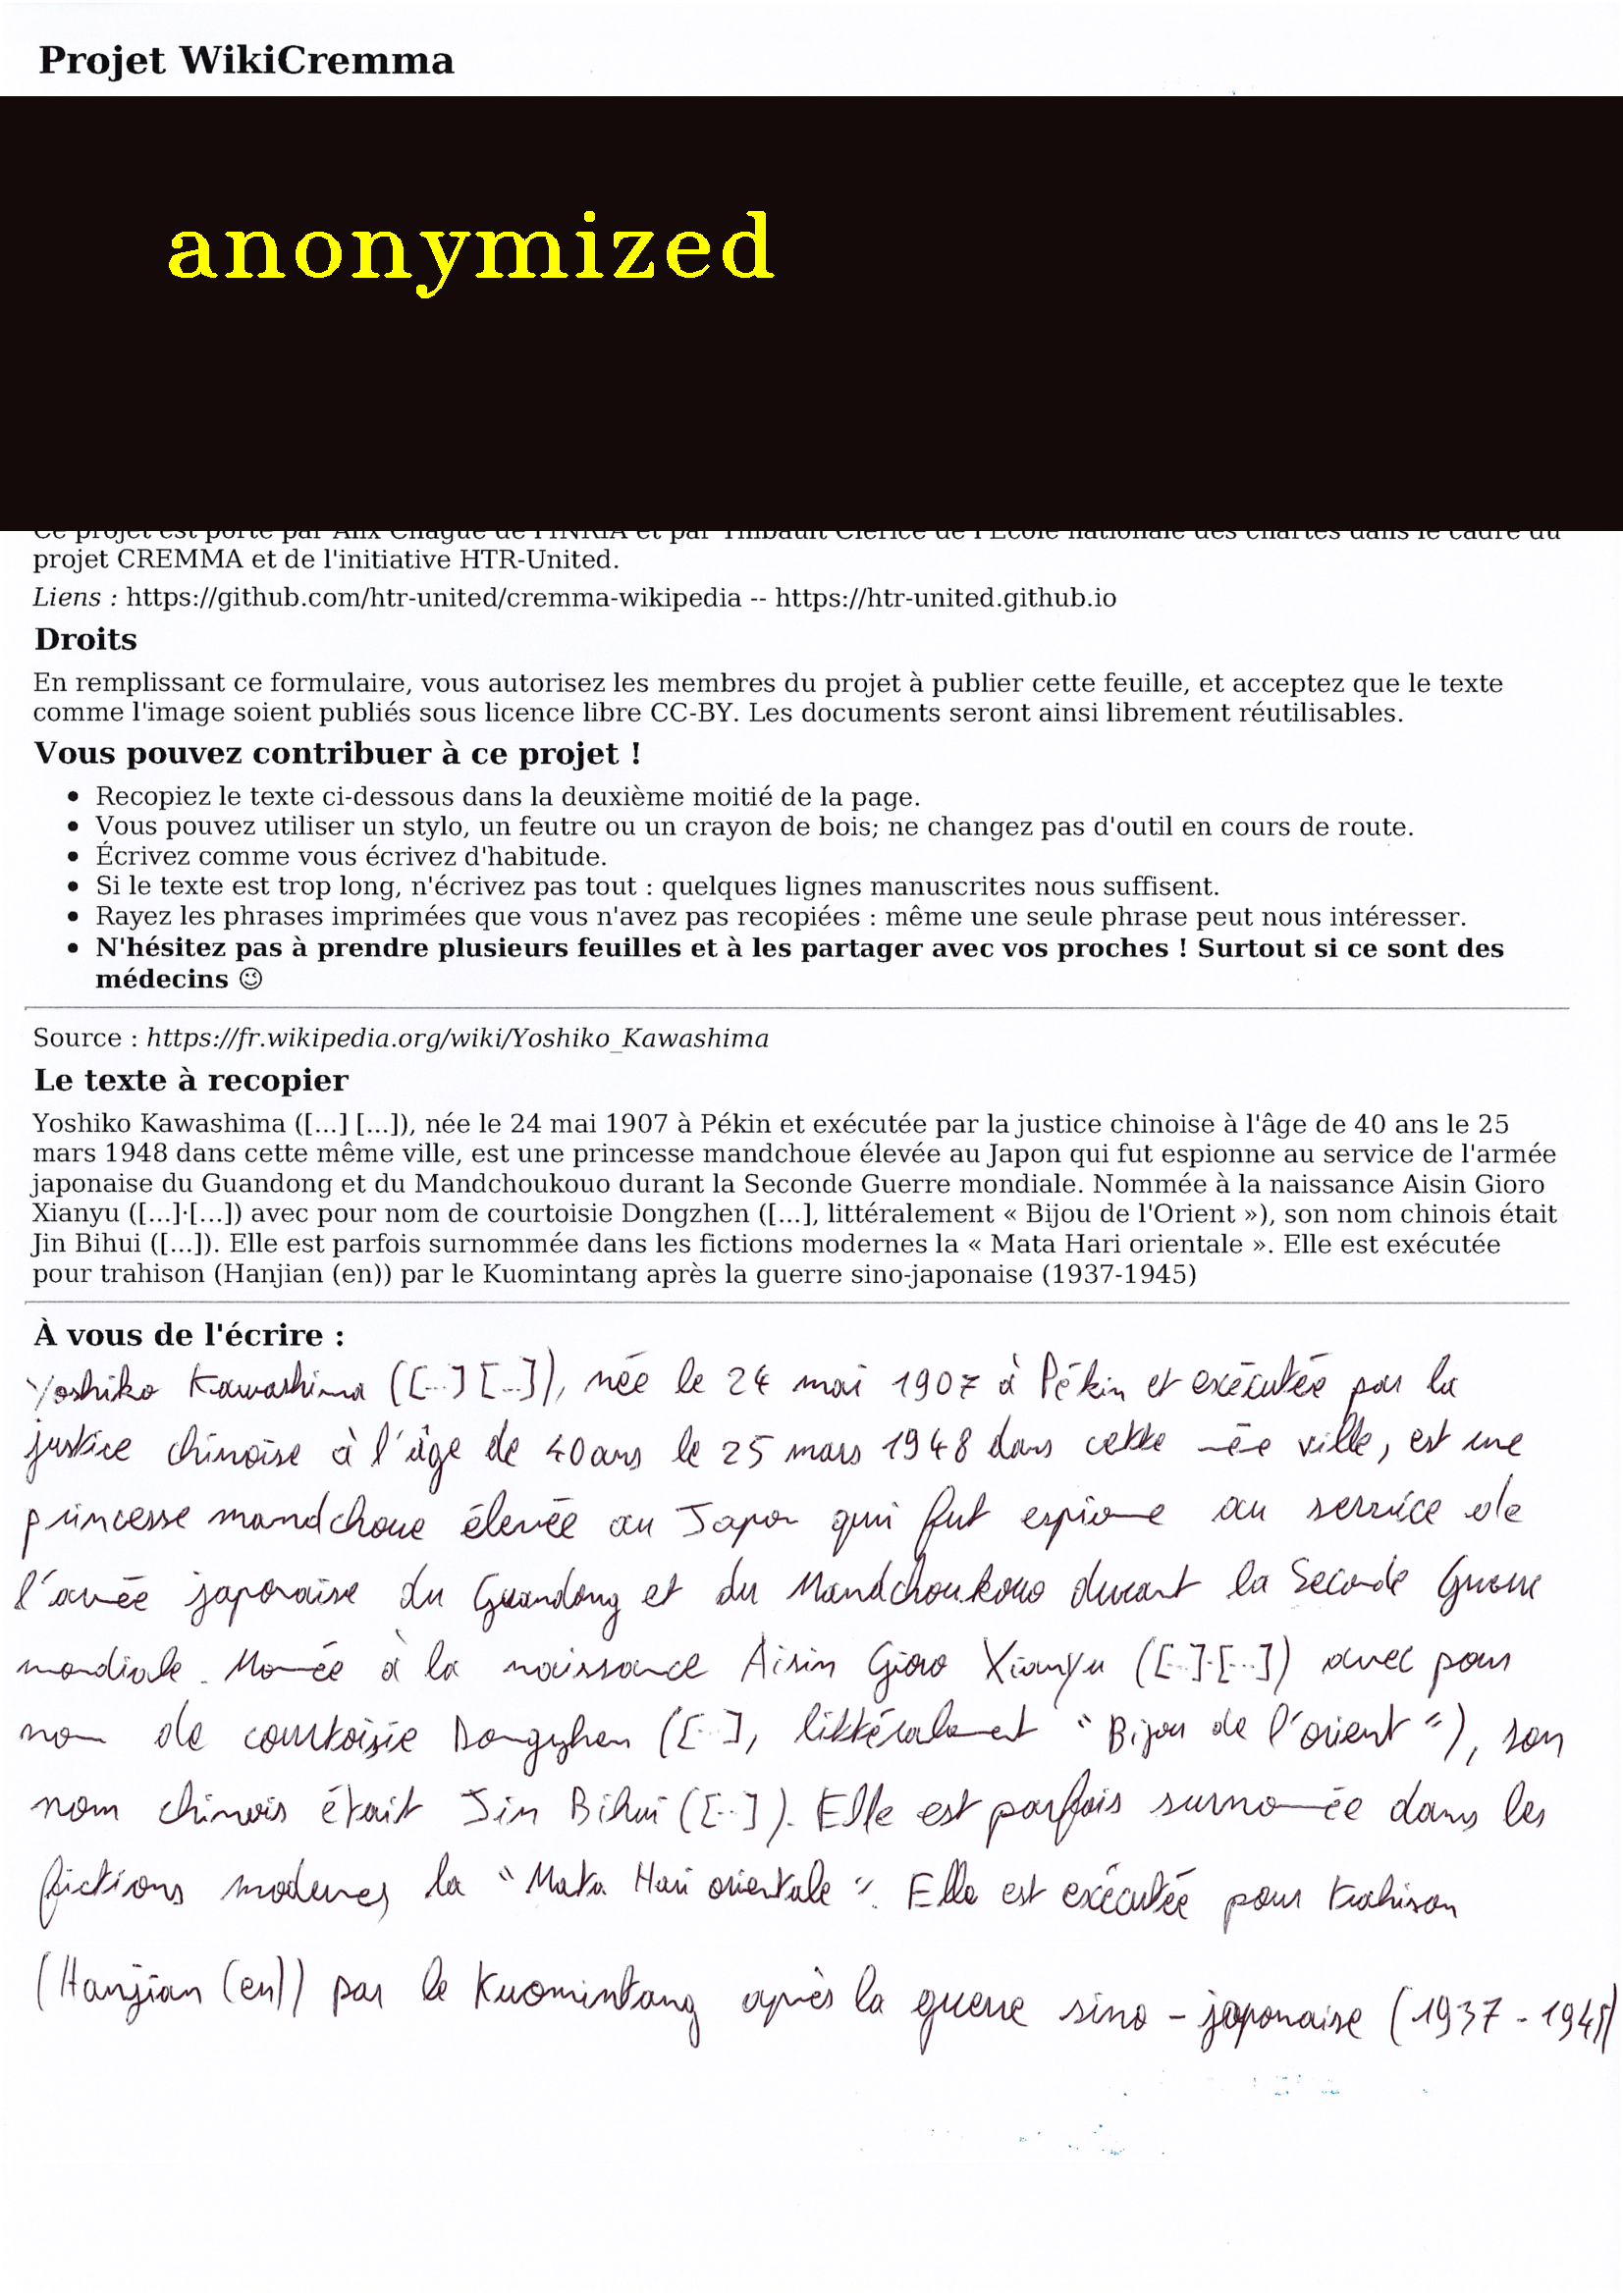 Projet WikiCremma
anonymized
Ce projet est porté par Alix Chagué de l'INRIA et par Thibault Clérice de l'École nationale des chartes dans le cadre du
projet CREMMA et de l'initiative HTR-United.
Liens : https://github.com/htr-united/cremma-wikipedia -- https://htr-united.github.io
Droits
En remplissant ce formulaire, vous autorisez les membres du projet à publier cette feuille, et acceptez que le texte
comme l'image soient publiés sous licence libre CC-BY. Les documents seront ainsi librement réutilisables.
Vous pouvez contribuer à ce projet !
• Recopiez le texte ci-dessous dans la deuxième moitié de la page.
• Vous pouvez utiliser un stylo, un feutre ou un crayon de bois; ne changez pas d'outil en cours de route.
• Écrivez comme vous écrivez d'habitude.
• Si le texte est trop long, n'écrivez pas tout : quelques lignes manuscrites nous suffisent.
• Rayez les phrases imprimées que vous n'avez pas recopiées : même une seule phrase peut nous intéresser.
• N'hésitez pas à prendre plusieurs feuilles et à les partager avec vos proches ! Surtout si ce sont des
médecins 😉
Source : https://fr.wikipedia.org/wiki/Yoshiko_Kawashima
Le texte à recopier
Yoshiko Kawashima ([...] [...]), née le 24 mai 1907 à Pékin et exécutée par la justice chinoise à l'âge de 40 ans le 25
mars 1948 dans cette même ville, est une princesse mandchoue élevée au Japon qui fut espionne au service de l'armée
japonaise du Guandong et du Mandchoukouo durant la Seconde Guerre mondiale. Nommée à la naissance Aisin Gioro
Xianyu ([...]·[...]) avec pour nom de courtoisie Dongzhen ([...], littéralement « Bijou de l'Orient »), son nom chinois était
Jin Bihui ([...]). Elle est parfois surnommée dans les fictions modernes la « Mata Hari orientale ». Elle est exécutée
pour trahison (Hanjian (en)) par le Kuomintang après la guerre sino-japonaise (1937-1945)
À vous de l'écrire :
Yoshiko Kawashima ([...] [...]), née le 24 mai 1907 à Pékin et exécutée par la
justice chinoise à l'âge de 40 ans le 25 mars 1948 dans cette même ville, est une
princesse mandchoue élevée au Japon qui fut espionne au service de
l'armée japonaise du Guandong et du Mandchoukouo durant la Seconde Guerre
mondiale. Nommée à la naissance Aisin Gioro Xianyu ([...]·[...]) avec pour
nom de courtoisie Dongzhen ([...], littéralement "Bijou de l'orient"), son
nom chinois était Jin Bihui ([...]). Elle est parfois surnommée dans les
fictions modernes la "Mata Hari orientale". Elle est exécutée pour trahison
(Hanjian (en)) par le Kuomintang après la guerre sino-japonaise (1937-1945)